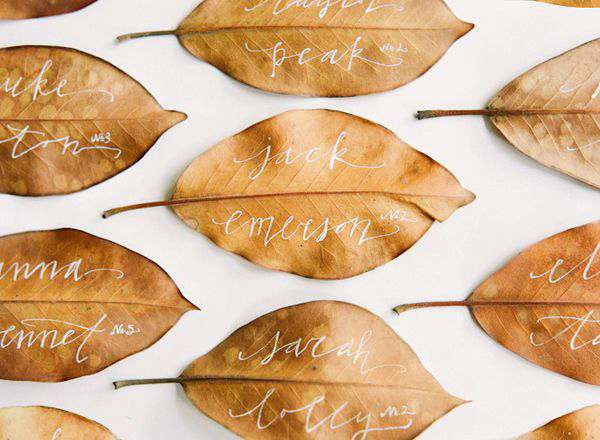 peak No.2
uke
ton No.3
jack
emerson No.2
anna
ennet No.5
sarah
lolly No.2
el
ta